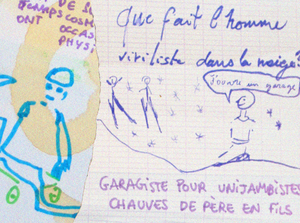 TEMPS COSM
ONT OCCAS
PHYSI
Que fait l'homme
viriliste dans la neige?
J'ouvre un garage
GARAGISTE POUR UNIJAMBISTES
CHAUVES DE PÈRE EN FILS